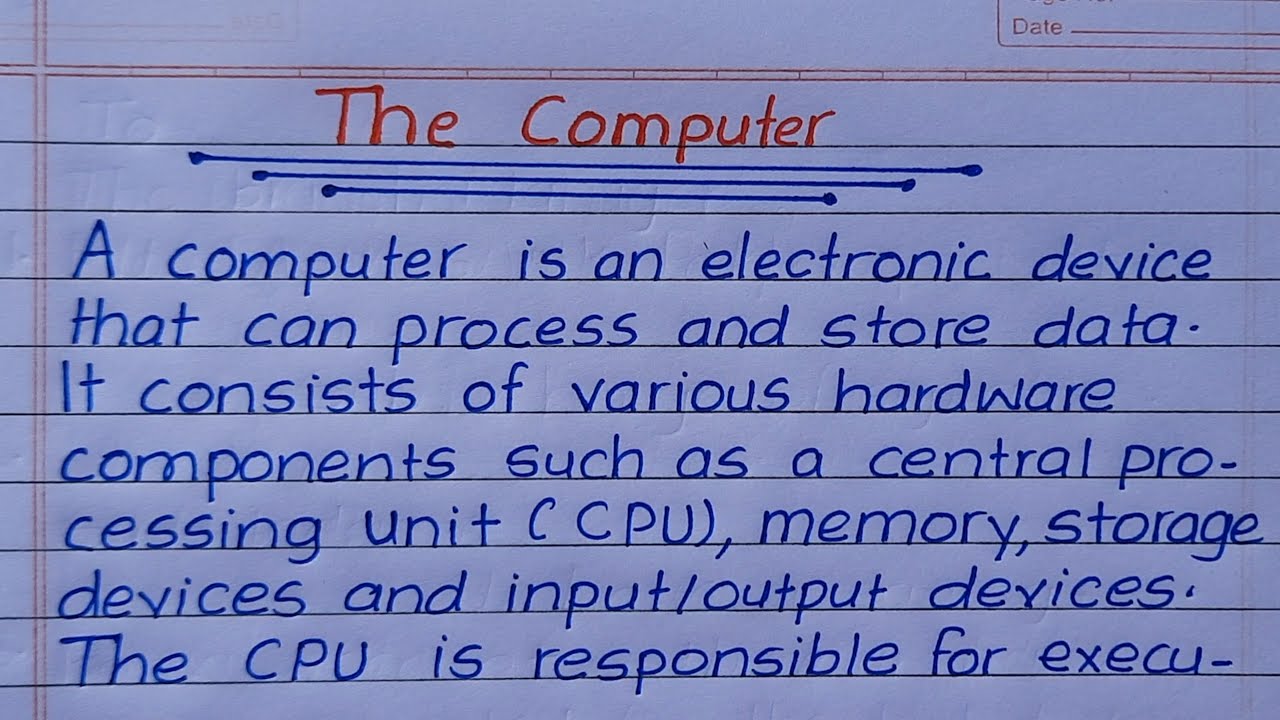 Date
The Computer
A computer is an electronic device
that can process and store data.
It consists of various hardware
components such as a central pro-
cessing unit (CPU), memory, storage
devices and input/output devices.
The CPU is responsible for execu-